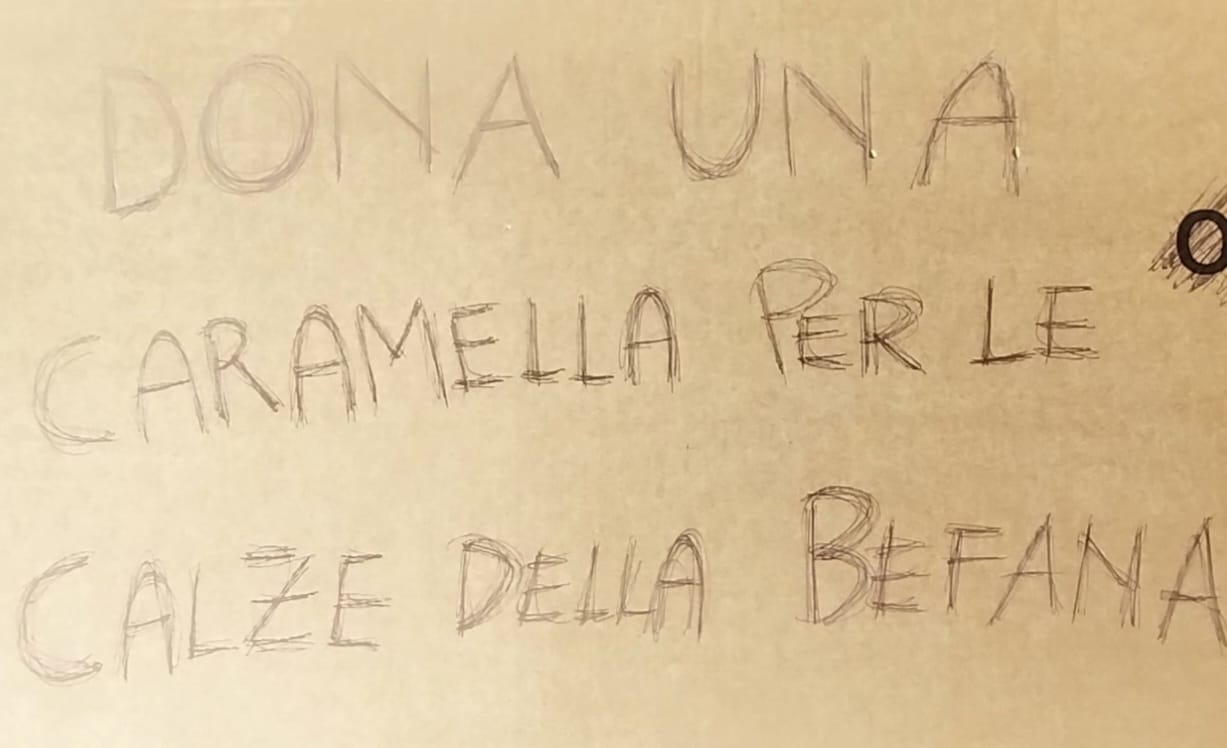 DONA UNA
CARAMELLA PER LE
CALZE DELLA BEFANA